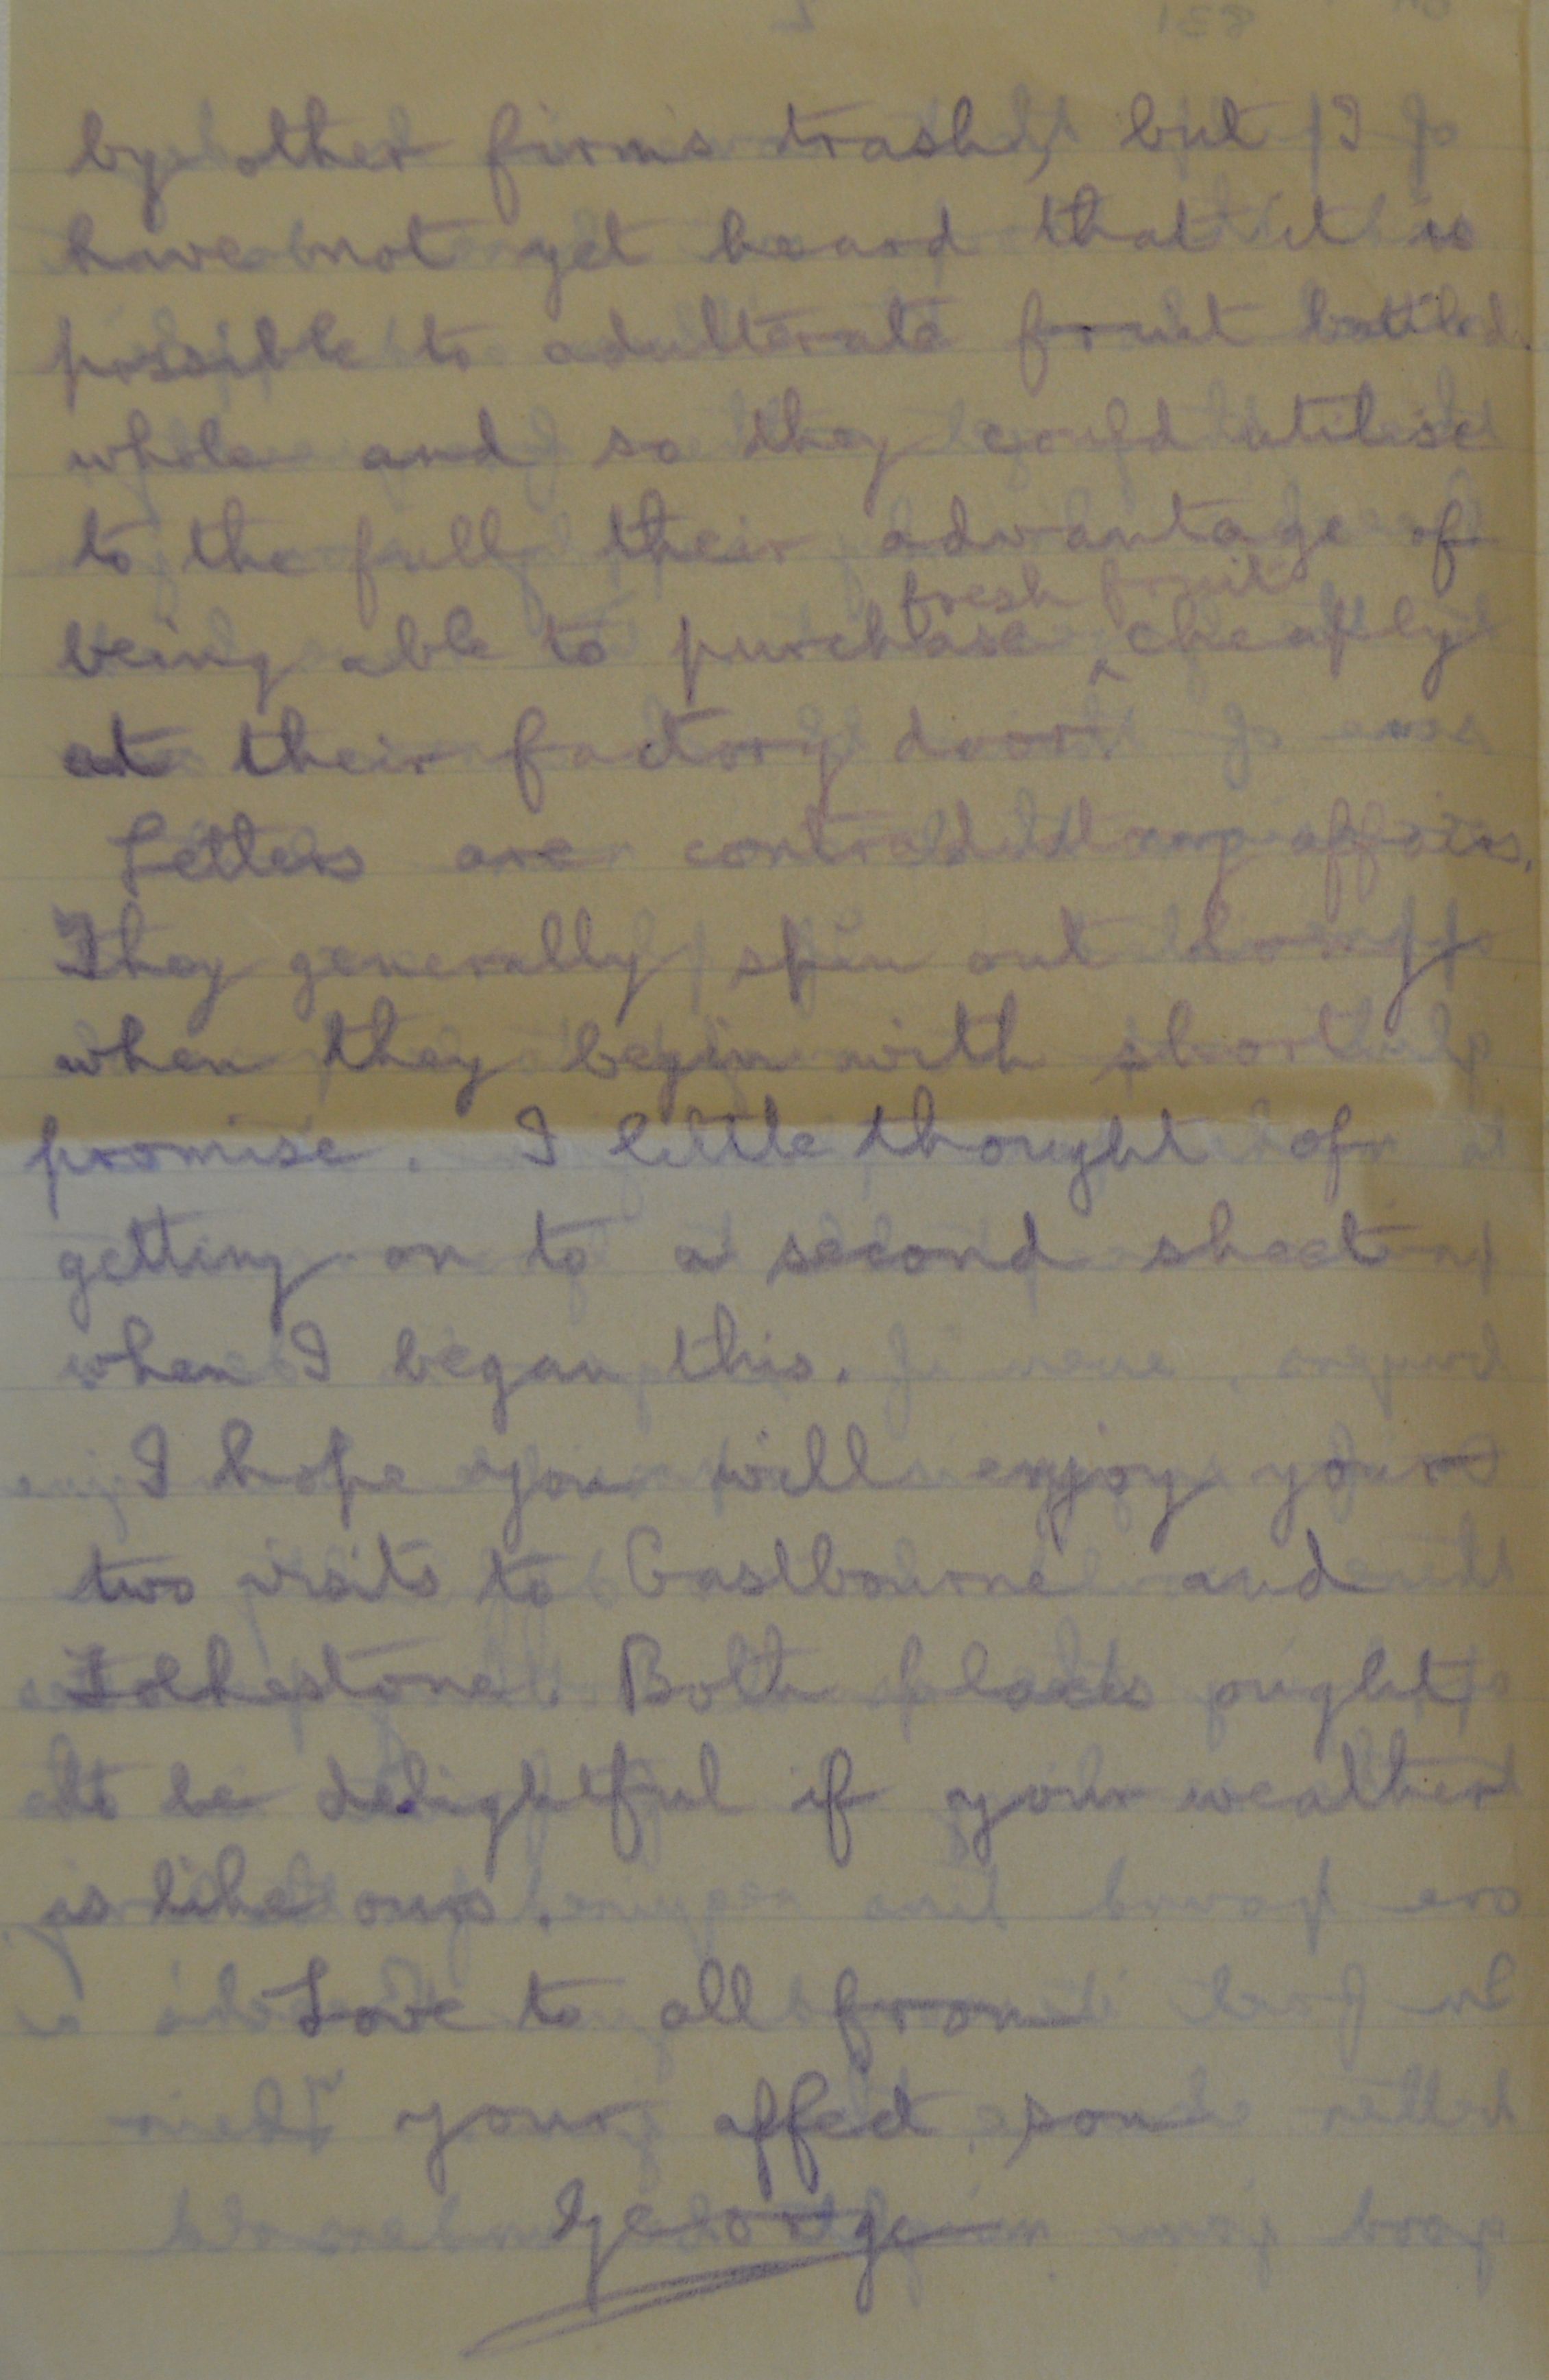 by other firms trash, but I
have not yet heard that it is
possible to adulterate fruit bottled
whole and so they could utilise
to the full their advantage of
being able to purchase ^fresh fruit cheaply
at their factory door.
Letters are contradictory affairs.
They generally spin out long
when they begin with short
promise. I little thought of
getting on to a second sheet
when I began this.
I hope you will enjoy your
two visits to Eastbourne and
Folkestone. Both places ought
to be delightful if your weather
is like ours.
Love to all from
your affect. son
George